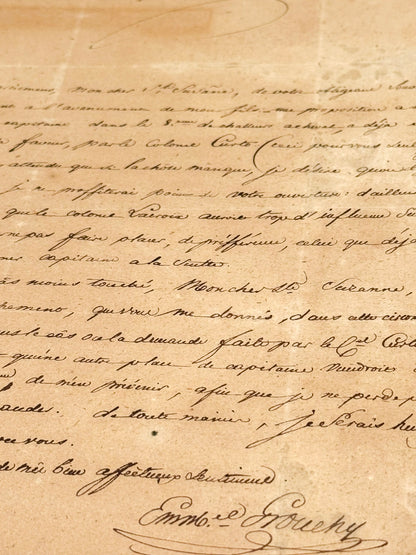 mon cher Ste Suzanne, de votre obligeance
a l'avancement de mon fils. me proposition a
capitaine dans le 8eme de chasseurs acheval, a déja
faveur, par le Colonel Curto (ceci pour vous seul
attendu que si la chose manque, je désire qu'une
je ne profiterai point de votre ouverture d'ailleu
que le colonel Lacroix aurait trop d'influence
pas faire placer, de préférence, celui que déja
capitaine a la Suitte.
moins touché, Mon cher Ste Suzanne,
que vous me donnés, dans cette circon
le cas où la demande faite par le Cel Curto
qu'une autre place de capitaine viendroit
de m'en prévenir, afin que je ne perde p
de toute manière, je serais heu
vous.
de mes bien affectueux Sentiments
Emmel Grouchy